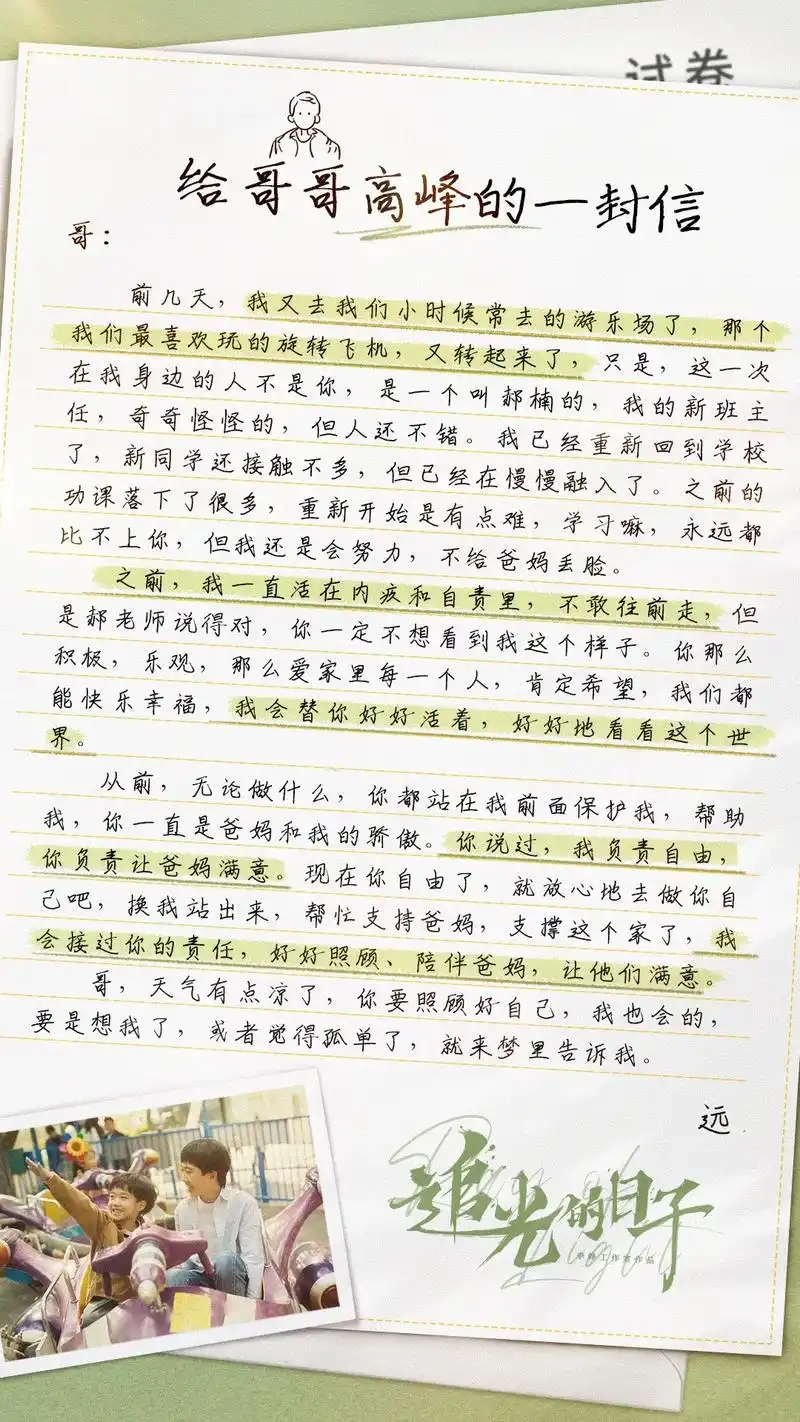 试卷
给哥哥高峰的一封信
哥：
前几天，我又去我们小时候常去的游乐场了，那个
我们最喜欢玩的旋转飞机，又转起来了，只是，这一次
在我身边的人不是你，是一个叫郝楠的，我的新班主
任，奇奇怪怪的，但人还不错。我已经重新回到学校
了，新同学还接触不多，但已经在慢慢融入了。之前的
功课落下了很多，重新开始是有点难，学习嘛，永远都
比不上你，但我还是会努力，不给爸妈丢脸。
之前，我一直活在内疚和自责里，不敢往前走，但
是郝老师说得对，你一定不想看到我这个样子。你那么
积极，乐观，那么爱家里每一个人，肯定希望，我们都
能快乐幸福，我会替你好好活着，好好地看看这个世
界。
从前，无论做什么，你都站在我前面保护我，帮助
我，你一直是爸妈和我的骄傲。你说过，我负责自由，
你负责让爸妈满意。现在你自由了，就放心地去做你自
己吧，换我站出来，帮忙支持爸妈，支撑这个家了，我
会接过你的责任，好好照顾、陪伴爸妈，让他们满意。
哥，天气有点凉了，你要照顾好自己，我也会的，
要是想我了，或者觉得孤单了，就来梦里告诉我。
远
追光的日子